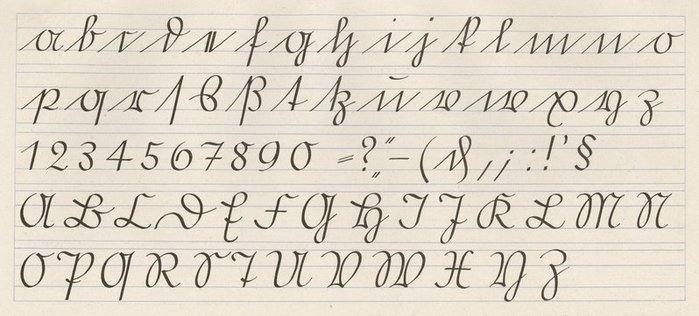 a b c d e f g h i j k l m n o
p q r ſ s ß t tz ū v w x y z
1 2 3 4 5 6 7 8 9 0 = ? „“ – ( & , ; : ! ' §
A B C D E F G H I J K L M N
O P Q R S T U V W X Y Z